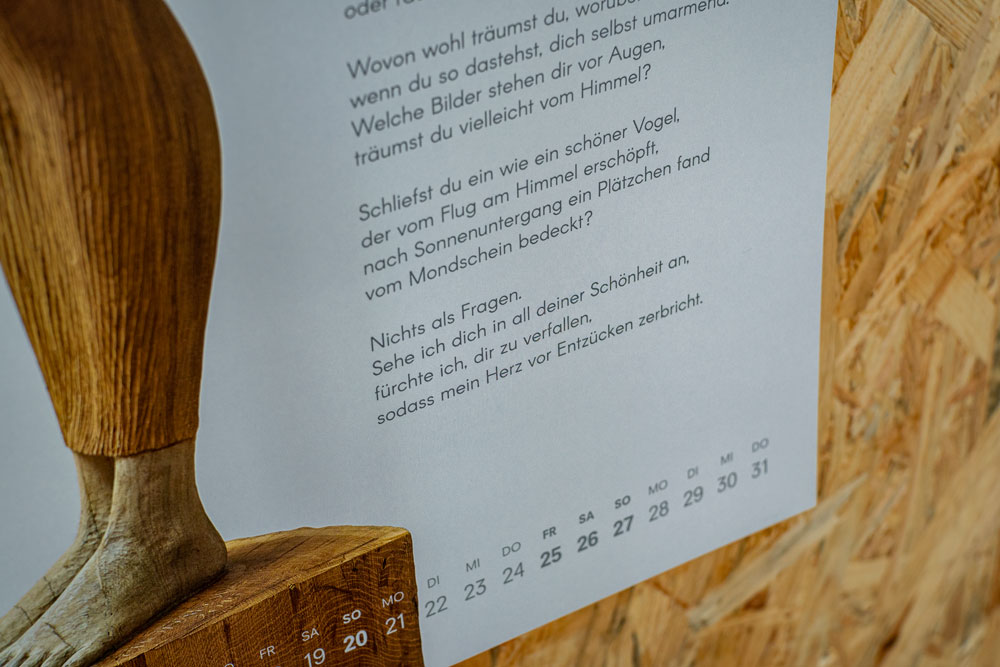 oder
Wovon wohl träumst du,
wenn du so dastehst, dich selbst umarmend.
Welche Bilder stehen dir vor Augen,
träumst du vielleicht vom Himmel?
Schliefst du ein wie ein schöner Vogel,
der vom Flug am Himmel erschöpft,
nach Sonnenuntergang ein Plätzchen fand
vom Mondschein bedeckt?
Nichts als Fragen.
Sehe ich dich in all deiner Schönheit an,
fürchte ich, dir zu verfallen,
sodass mein Herz vor Entzücken zerbricht.
FR SA SO MO DI MI DO FR SA SO MO DI MI DO
19 20 21 22 23 24 25 26 27 28 29 30 31